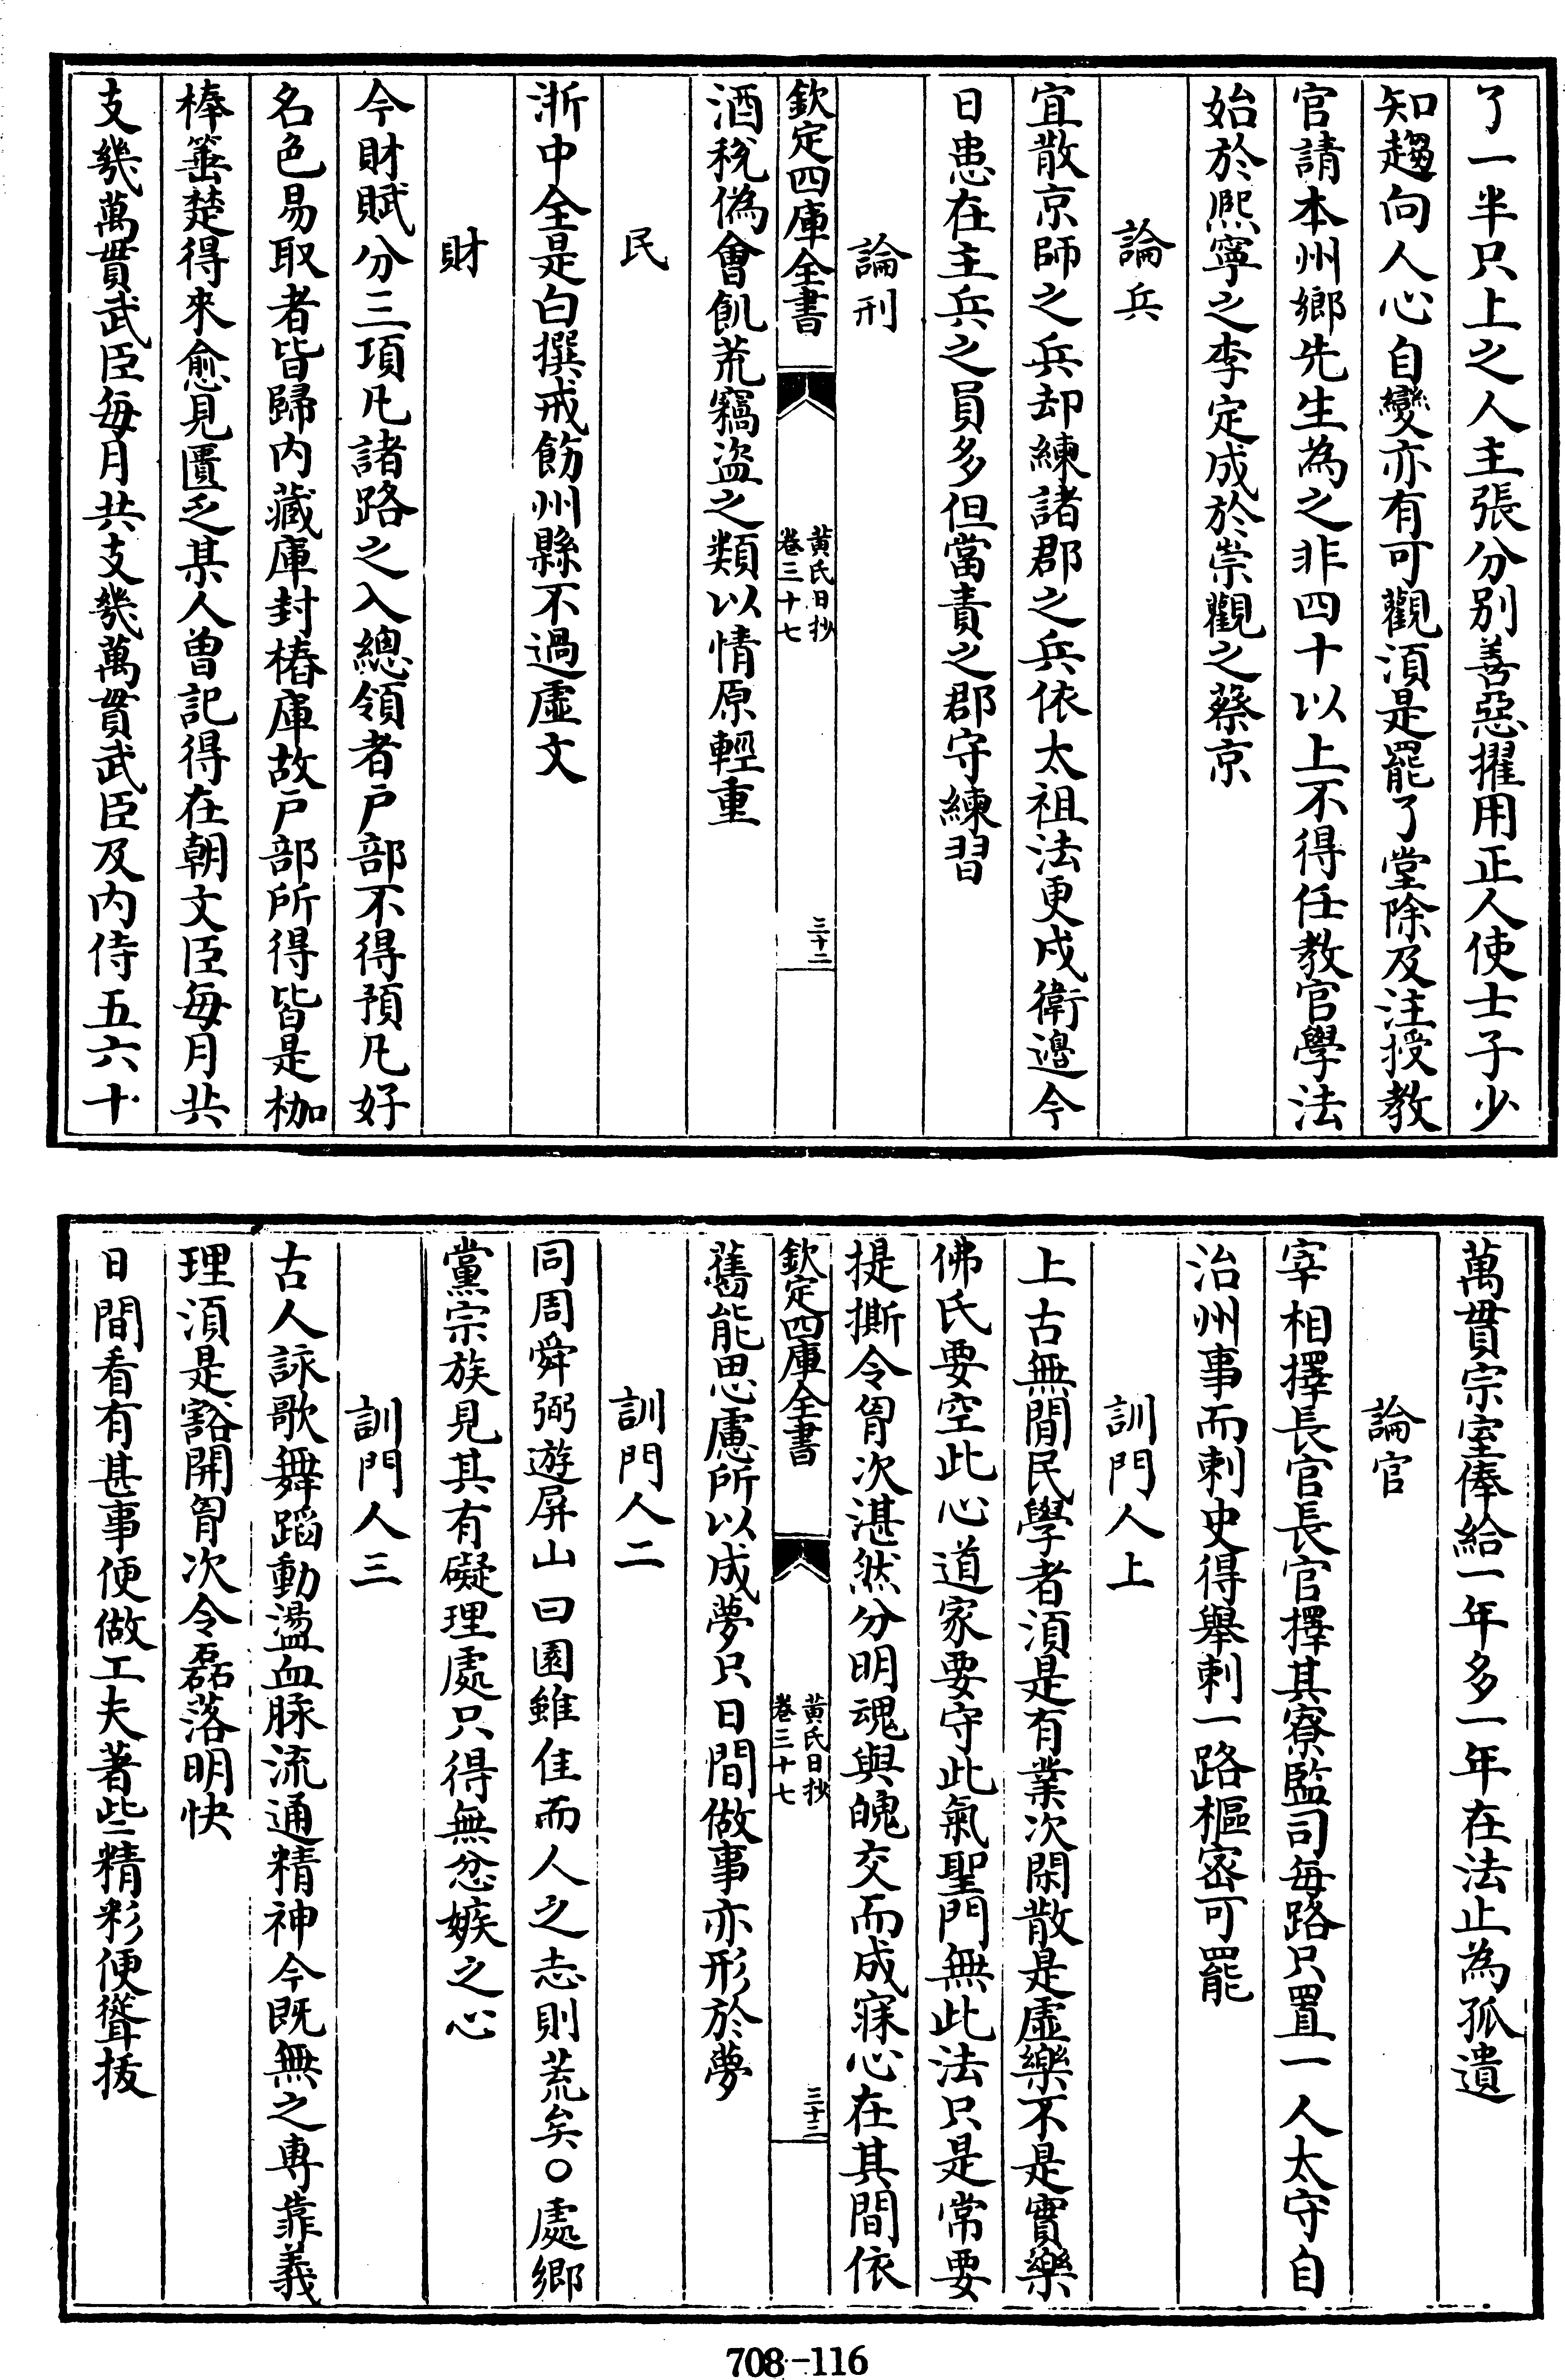 了一半只上之人主張分别善惡擢用正人使士子少
知趨向人心自變亦有可觀須是罷了堂除及注授教
官請本州鄉先生為之非四十以上不得任教官學法
始於熈寧之李定成於崇觀之蔡京
論兵
宜散京師之兵却練諸郡之兵依太祖法更戍衛邉今
日患在主兵之員多但當責之郡守練習
論刑
欽定四庫全書
黄氏日抄
卷三十七
三十二
酒稅偽㑹飢荒竊盗之類以情原輕重
民
浙中全是白撰戒飭州縣不過虚文
財
今財賦分三項凡諸路之入總領者户部不得預凡好
名色易取者皆歸内藏庫封樁庫故户部所得皆是枷
棒箠楚得來愈見匱乏某人曽記得在朝文臣毎月共
支幾萬貫武臣毎月共支幾萬貫武臣及内侍五六十
萬貫宗室俸給一年多一年在法止為孤遺
論官
宰相擇長官長官擇其寮監司毎路只置一人太守自
治州事而刺史得舉刺一路樞宻可罷
訓門人上
上古無閒民學者須是有業次閑散是虚樂不是實樂
佛氏要空此心道家要守此氣聖門無此法只是常要
提撕令胷次湛然分明魂與魄交而成寐心在其間依
欽定四庫全書
黄氏日抄
卷三十七
三十三
舊能思慮所以成夢只日間做事亦形於夢
訓門人二
同周舜弼遊屏山曰園雖佳而人之志則荒矣○處鄉
黨宗族見其有礙理處只得無忿嫉之心
訓門人三
古人詠歌舞蹈動盪血脉流通精神今既無之専靠義
理須是豁開胷次令磊落明快
日間看有甚事便做工夫著些精彩便聳拔
708-116